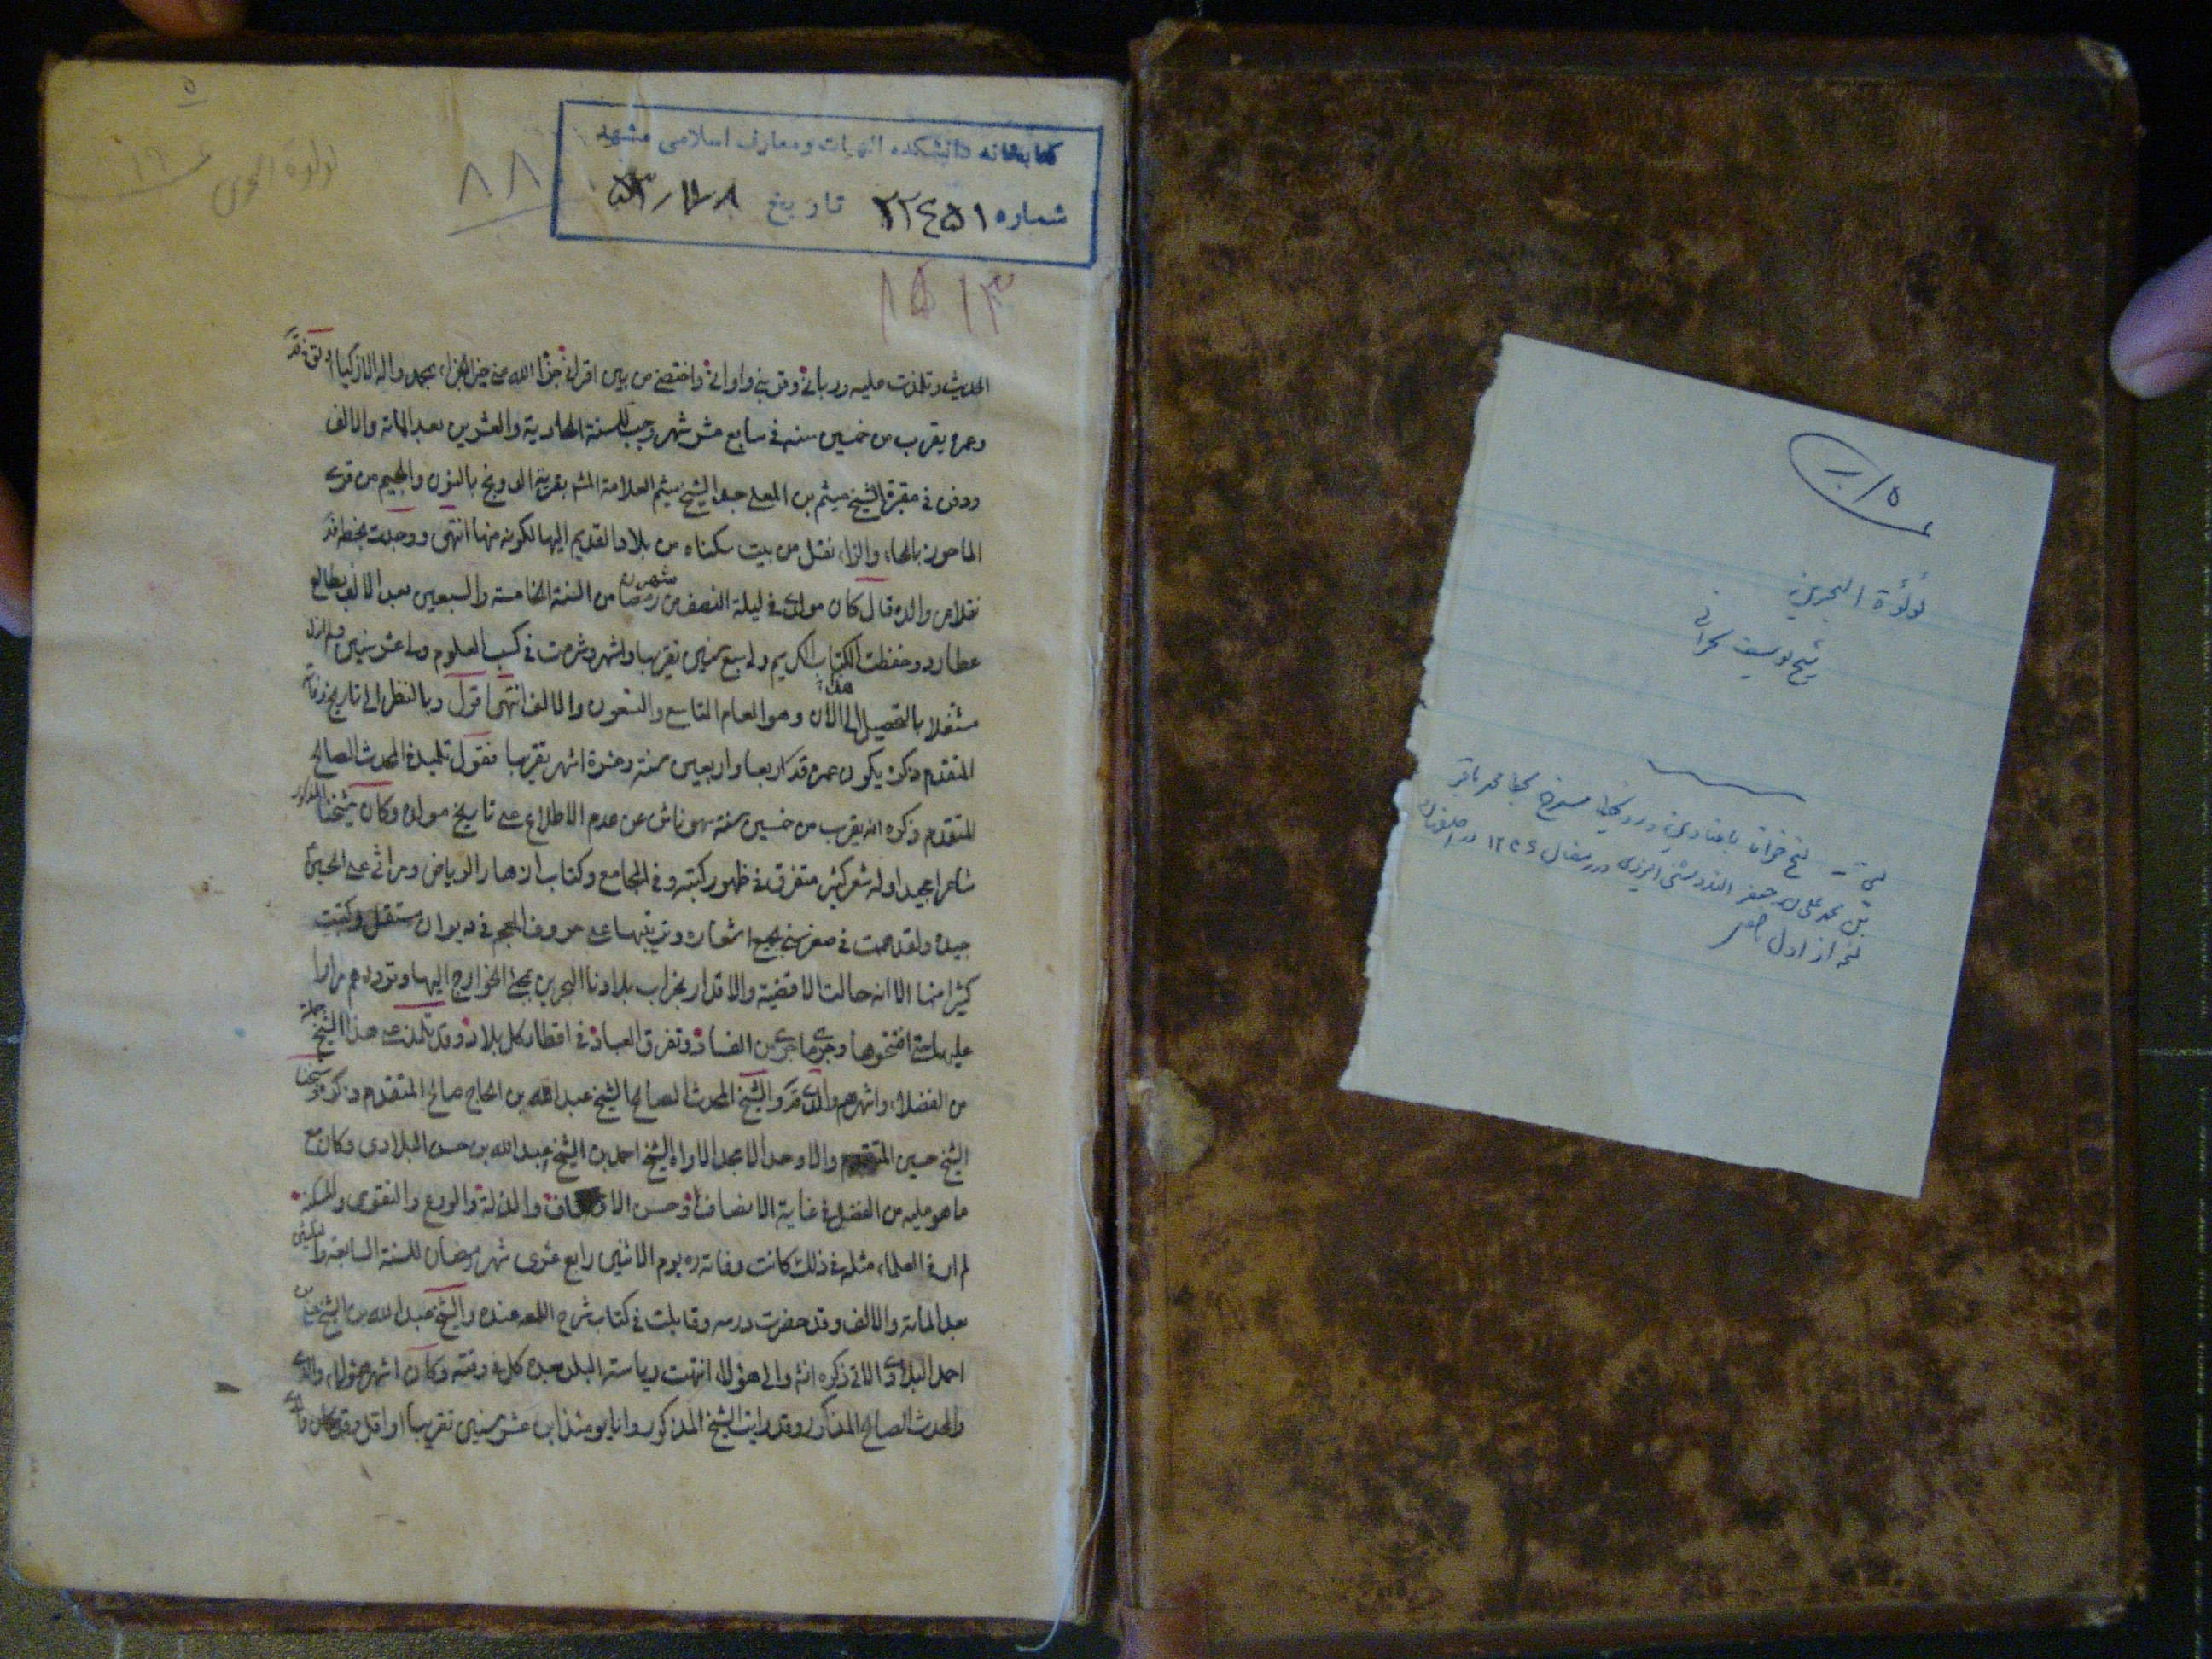 لؤلؤة البحرين
شیخ یوسف بحرانی
کتابخانه دانشکده الهیات و معارف اسلامی مشهد
شماره ۲۲٤۵۱ تاریخ
۸۸
۵
الحديث وتلمذت عليه ورباني وقربني وآواني واختصني من بين اقراني جزاه الله عني خير الجزاء بحمد وآله الازكياء توفي قد
وعمره يقرب من خمسين سنه في سابع عشر شهر رجب للسنة الحادية والعشرين بعد المائة والالف
ودفن في مقبرة الشيخ ميثم بن المعلى جد الشيخ ميثم العلامة المشهور بقرية الدونج بالنون والجيم من قرى
الماحوز بالحاء والزاء نقل من بيت سكناه من بلاد القديم اليها لكونه منها انتهى ووجدت بخطه قد
نقلا من والده قال كان مولدي في ليلة النصف من شهر رمضان من السنة الخامسة والسبعين بعد الالف بطالع
عطارد وحفظت الكتاب الكريم ولي سبع سنين تقريبا واشهر وشرعت في كسب العلوم ولي عشر سنين ولم ازل
مشتغلا بالتحصيل الى الان هذا وهو العام التاسع والتسعون والالف انتهى اقول وبالنظر الى تاريخ وفاته
المتقدم ذكره يكون عمره قد اربعا واربعين سنة وعشرة اشهر تقريبا فقول تلميذه المحدث الصالح
المتقدم ذكره انه يقرب من خمسين سنة سهو ناش عن عدم الاطلاع على تاريخ مولده وكان شيخنا المذكور
شاعرا مجيدا وله شعر كثير متفرق في ظهور كتبه وفي المجاميع وكتاب ازهار الرياض ومراثي على الحسين
جيده ولقد هممت في صغر سني بجمع اشعاره وترتيبها على حروف المعجم في ديوان مستقل وكتبت
كثيرا منها الا انه حالت الاقضية والاقدار بخراب بلادنا البحرين بمجئ الخوارج اليها وترددهم مرارا
عليها حتى افتتحوها وجرى ما جرى من الفساد وتفرق العباد في اقطار كل بلاد وقد تلمذ على هذا الشيخ جملة
من الفضلاء واشهرهم والدي قد والشيخ المحدث الصالح الشيخ عبد الله بن الحاج صالح المتقدم ذكره وشيخنا
الشيخ حسين المتقدم والاوحد الامجد الاواه الشيخ احمد بن الشيخ عبد الله بن حسن البلادي وكان مع
ما هو عليه من الفضل في غاية الانصاف وحسن الاوصاف والذلة والورع والتقوى والمسكنة
لم ار في العلماء مثله في ذلك كانت وفاته ره يوم الاثنين رابع عشر شهر رمضان للسنة السابعة والثلثين
بعد المائة والالف وقد حضرت درسه وقابلت في كتاب شرح اللمعه عنده والشيخ عبد الله بن الشيخ
احمد البلادي الاتي ذكره انشم والى هؤلاء انتهت رياسة البلد بعده كل في وقته وكان اشهر هؤلاء والدي
والمحدث الصالح المذكور وقد رايت الشيخ المذكور وانا يومئذ ابن عشر سنين تقريبا او اقل